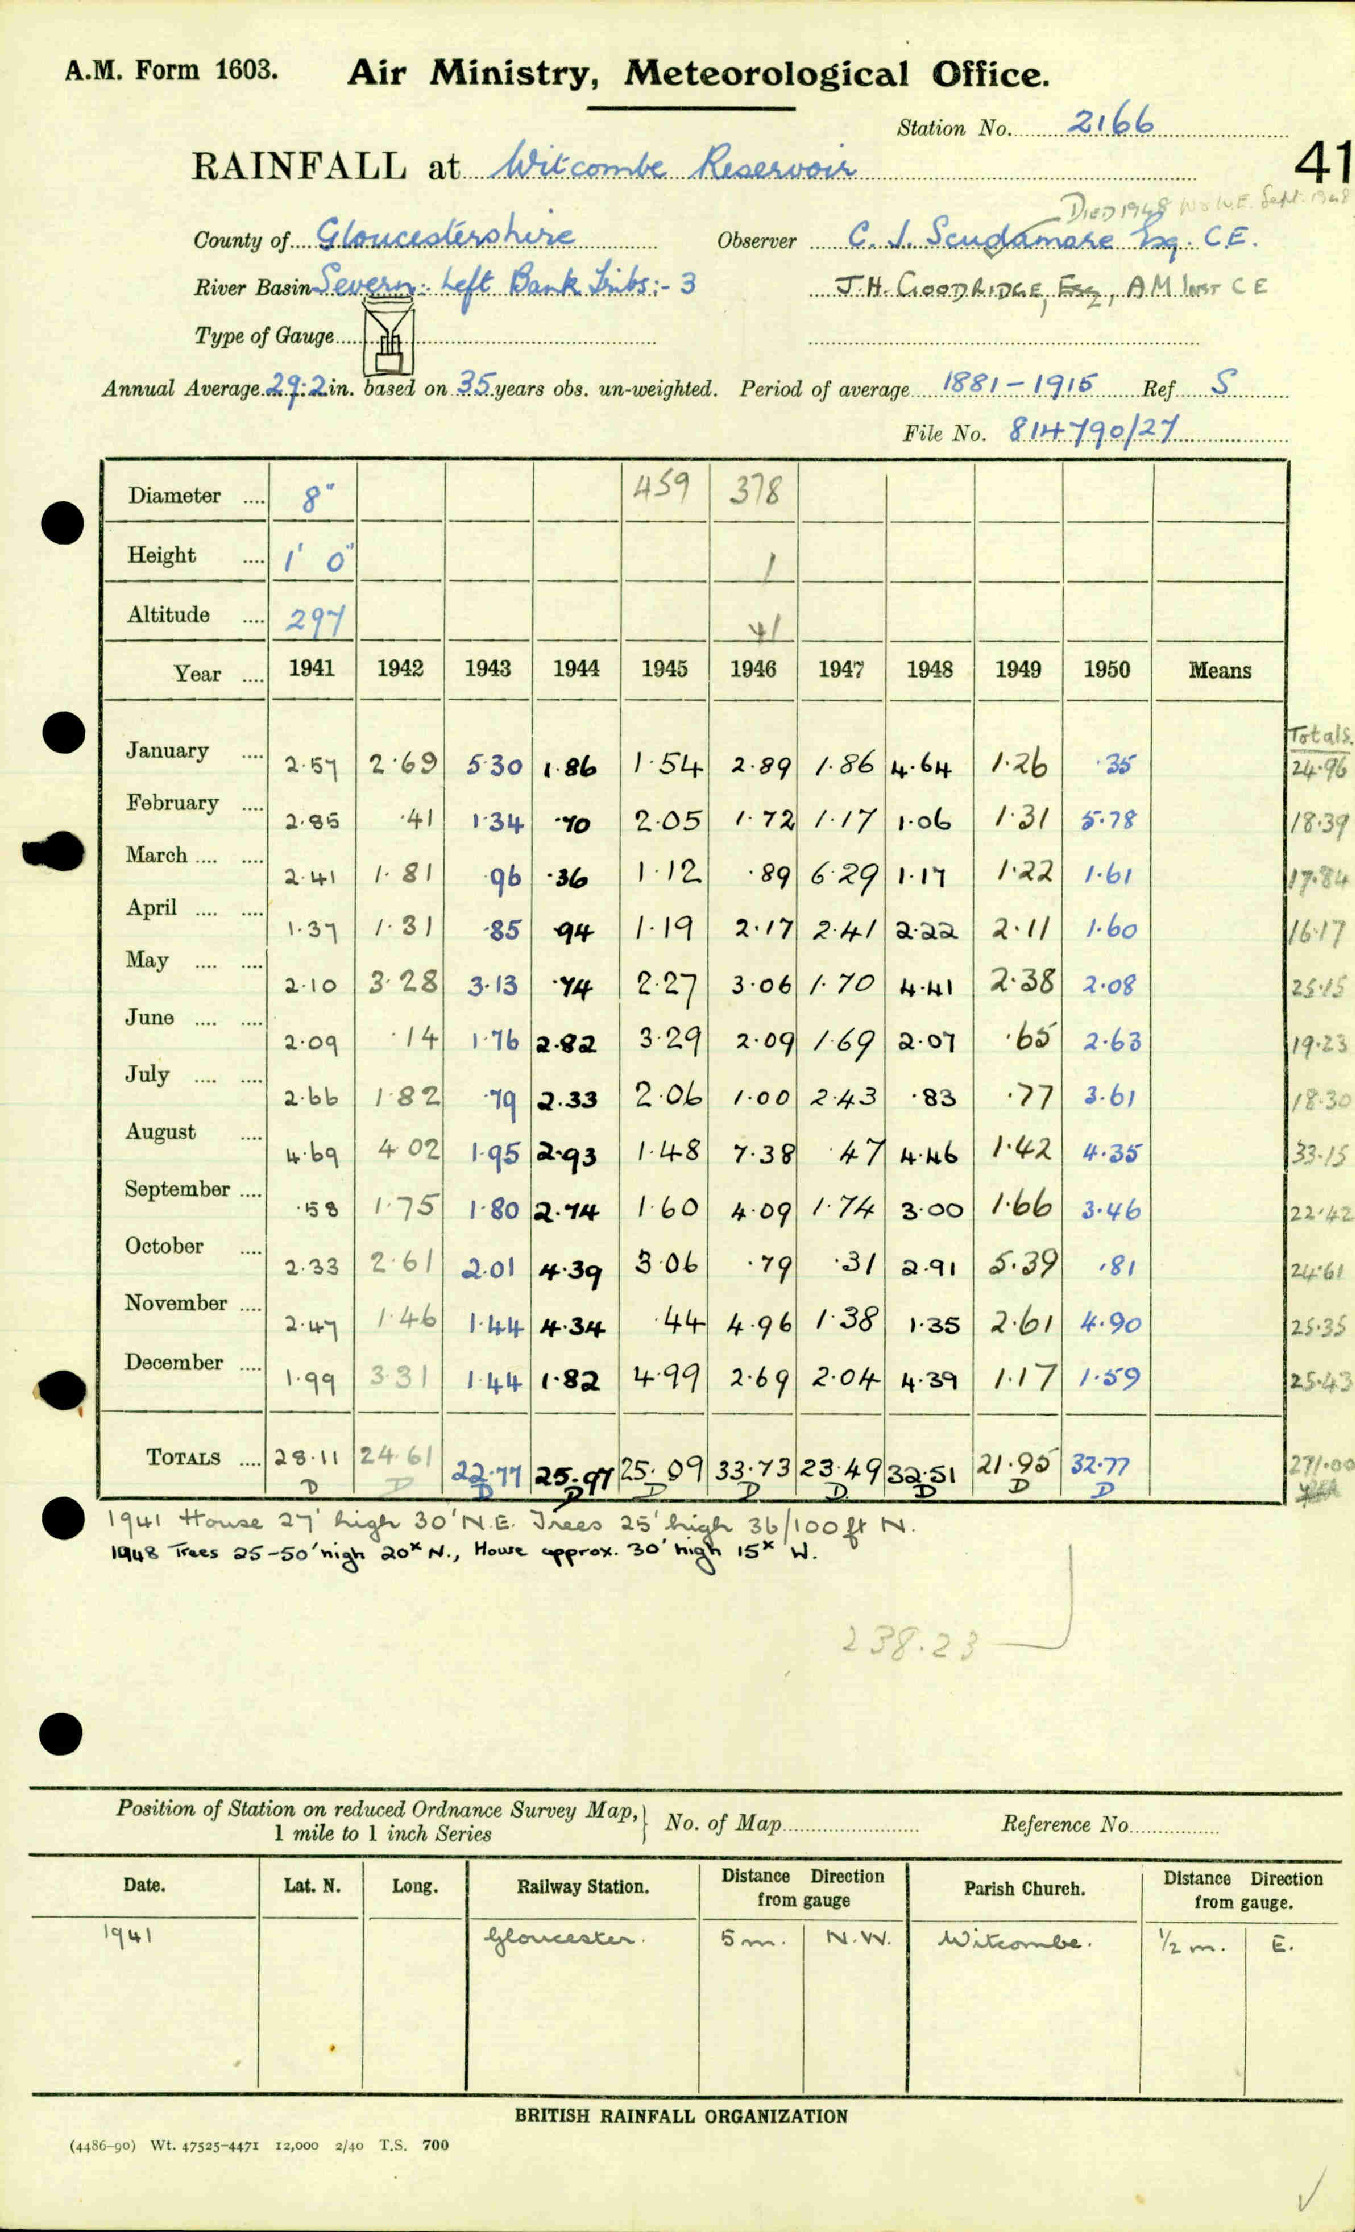 A.M. Form 1603. Air Ministry, Meteorological Office.
Station No. 2166
41
RAINFALL at Witcombe Reservoir
DIED 1948 Sept. 1948
County of Gloucestershire Observer C. J. Scudamore Esq. C.E.
River Basin Severn:- Left Bank Tribs:- 3 J.H. GOODRIDGE, Esq, A M INST C E
Type of Gauge
Annual Average 29.2 in. based on 35 years obs. un-weighted. Period of average 1881-1915 Ref S
File No. 814790/27
Diameter .... 8" 459 378
Height .... 1' 0" 1
Altitude .... 297 41
Year .... 1941 1942 1943 1944 1945 1946 1947 1948 1949 1950 Means
Totals.
January .... 2.57 2.69 5.30 1.86 1.54 2.89 1.86 4.64 1.26 .35 24.96
February .... 2.85 .41 1.34 .70 2.05 1.72 1.17 1.06 1.31 5.78 18.39
March .... .... 2.41 1.81 .96 .36 1.12 .89 6.29 1.17 1.22 1.61 17.84
April .... .... 1.37 1.31 .85 .94 1.19 2.17 2.41 2.22 2.11 1.60 16.17
May .... .... 2.10 3.28 3.13 .74 2.27 3.06 1.70 4.41 2.38 2.08 25.15
June .... .... 2.09 .14 1.76 2.82 3.29 2.09 1.69 2.07 .65 2.63 19.23
July .... .... 2.66 1.82 .79 2.33 2.06 1.00 2.43 .83 .77 3.61 18.30
August .... 4.69 4.02 1.95 2.93 1.48 7.38 .47 4.46 1.42 4.35 33.15
September .... .58 1.75 1.80 2.74 1.60 4.09 1.74 3.00 1.66 3.46 22.42
October .... 2.33 2.61 2.01 4.39 3.06 .79 .31 2.91 5.39 .81 24.61
November .... 2.47 1.46 1.44 4.34 .44 4.96 1.38 1.35 2.61 4.90 25.35
December .... 1.99 3.31 1.44 1.82 4.99 2.69 2.04 4.39 1.17 1.59 25.43
TOTALS .... 28.11 24.61 22.77 25.97 25.09 33.73 23.49 32.51 21.95 32.77 271.00
D D D D D D D D D D
1941 House 27' high 30' N.E. Trees 25' high 36/100 ft N.
1948 Trees 25-50' high 20x N., House approx. 30' high 15x W.
238.23
Position of Station on reduced Ordnance Survey Map, 1 mile to 1 inch Series No. of Map Reference No
Date. Lat. N. Long. Railway Station. Distance Direction from gauge Parish Church. Distance Direction from gauge.
1941 Gloucester. 5 m. N.W. Witcombe. 1/2 m. E.
BRITISH RAINFALL ORGANIZATION
(4486-90) Wt. 47525-4471 12,000 2/40 T.S. 700